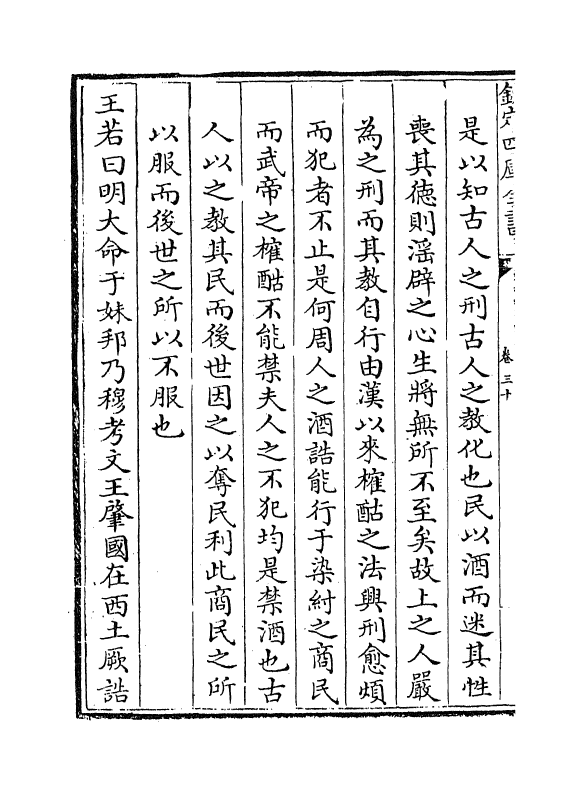 欽定四庫全書
卷三十
是以知古人之刑古人之教化也民以酒而迷其性
喪其徳則滛辟之心生將無所不至矣故上之人嚴
為之刑而其教自行由漢以來榷酤之法興刑愈煩
而犯者不止是何周人之酒誥能行于染紂之商民
而武帝之榷酤不能禁夫人之不犯均是禁酒也古
人以之教其民而後世因之以奪民利此商民之所
以服而後世之所以不服也
王若曰明大命于妹邦乃穆考文王肇國在西土厥誥